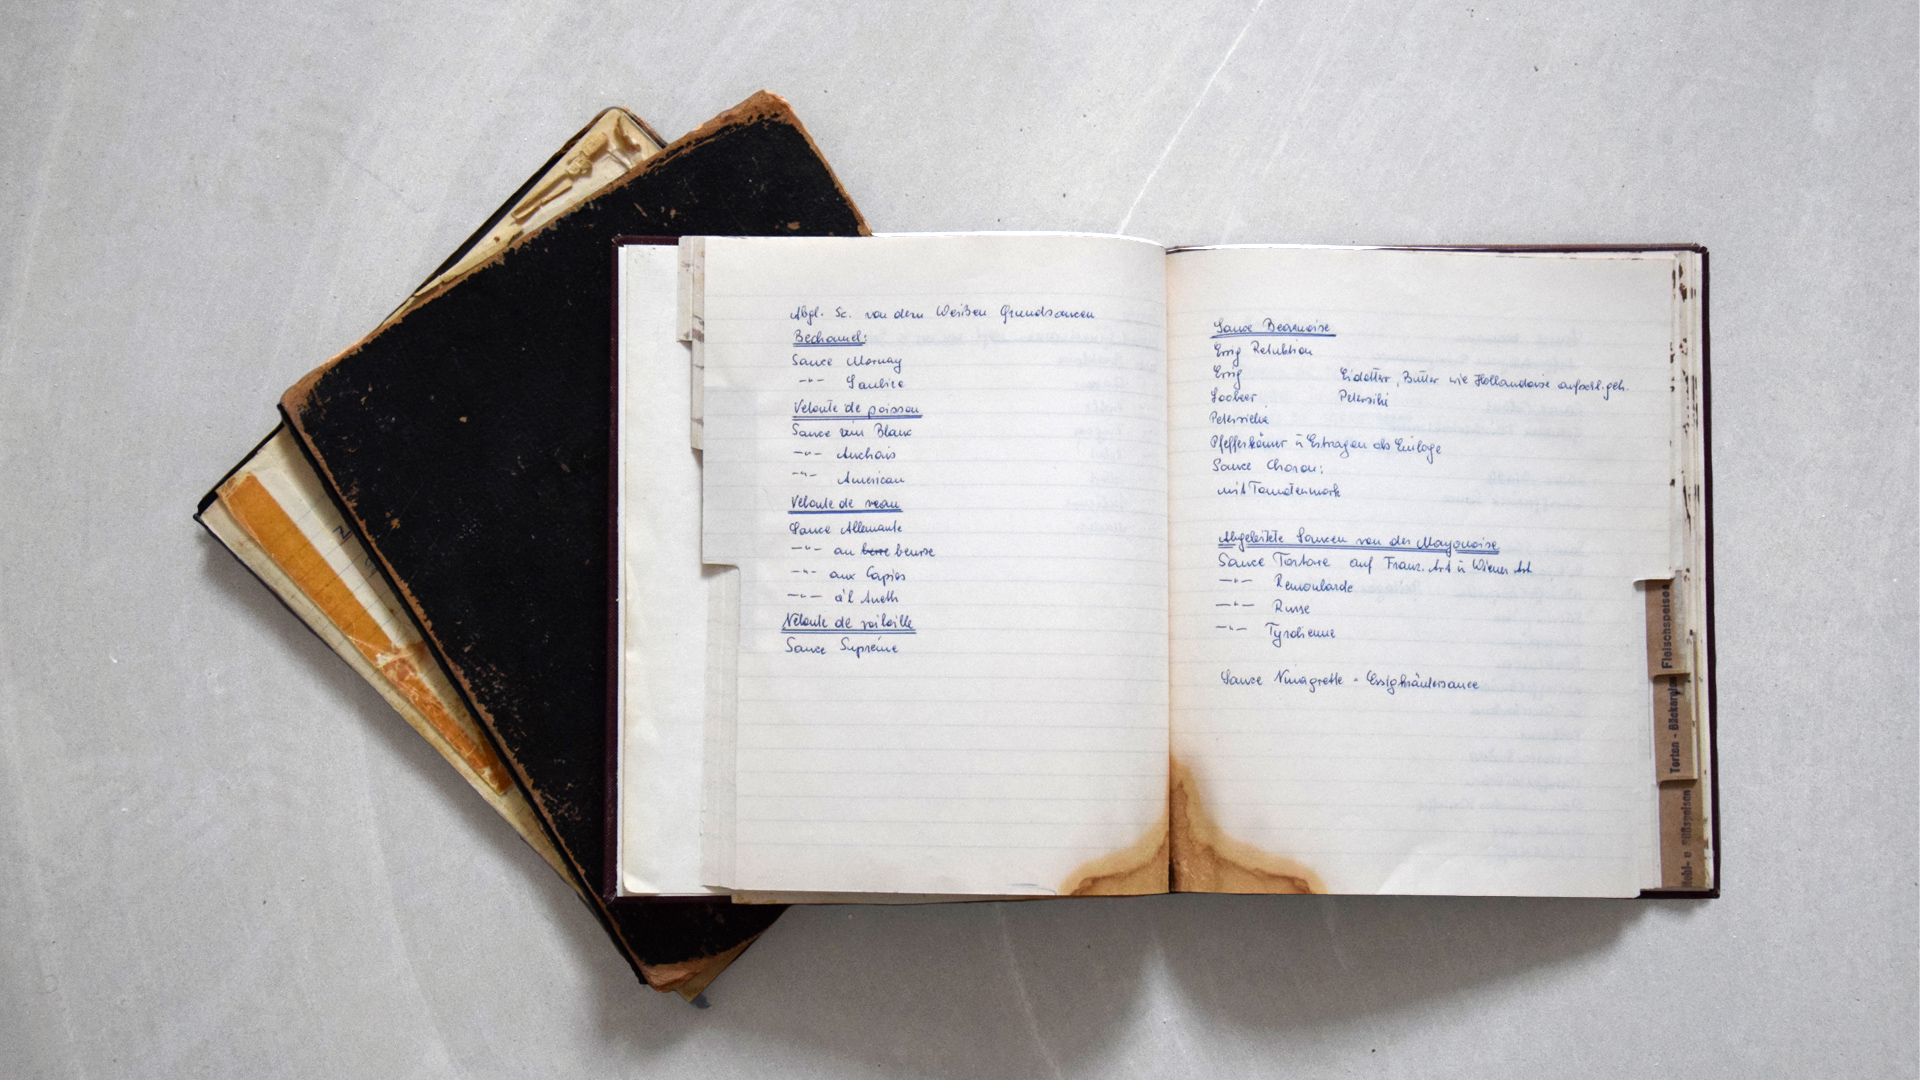 Abgl. Sc. von dern Weißen Grundsaucen
Bechamel:
Sauce Mornay
-"- Soubise
Veloute de poisson
Sauce vin Blanc
-"- Anchois
-"- American
Véloute de veau
Sauce Allemande
-"- au berre beurre
-"- aux Capres
-"- a'l Aneth
Veloute de volaille
Sauce Supréme
Sauce Bearnaise
Essig Reduktion
Essig Eidotter, Butter wie Hollandaise aufschl. geh.
Loobeer Petersilie
Petersielie
Pfefferkörner ū Estragon als Einlage
Sauce Choron:
mit Tomatenmark
Abgeleitete Saucen von der Mayonaise
Sauce Tartare auf Franz. Art ū Wiener Art
-"- Remoularde
-"- Russe
-"- Tyrolienne
Sauce Vinagrette - Essigkräutersauce
Fleischspeisen
Torten - Bäckerei
Mehl- u. Süßspeisen